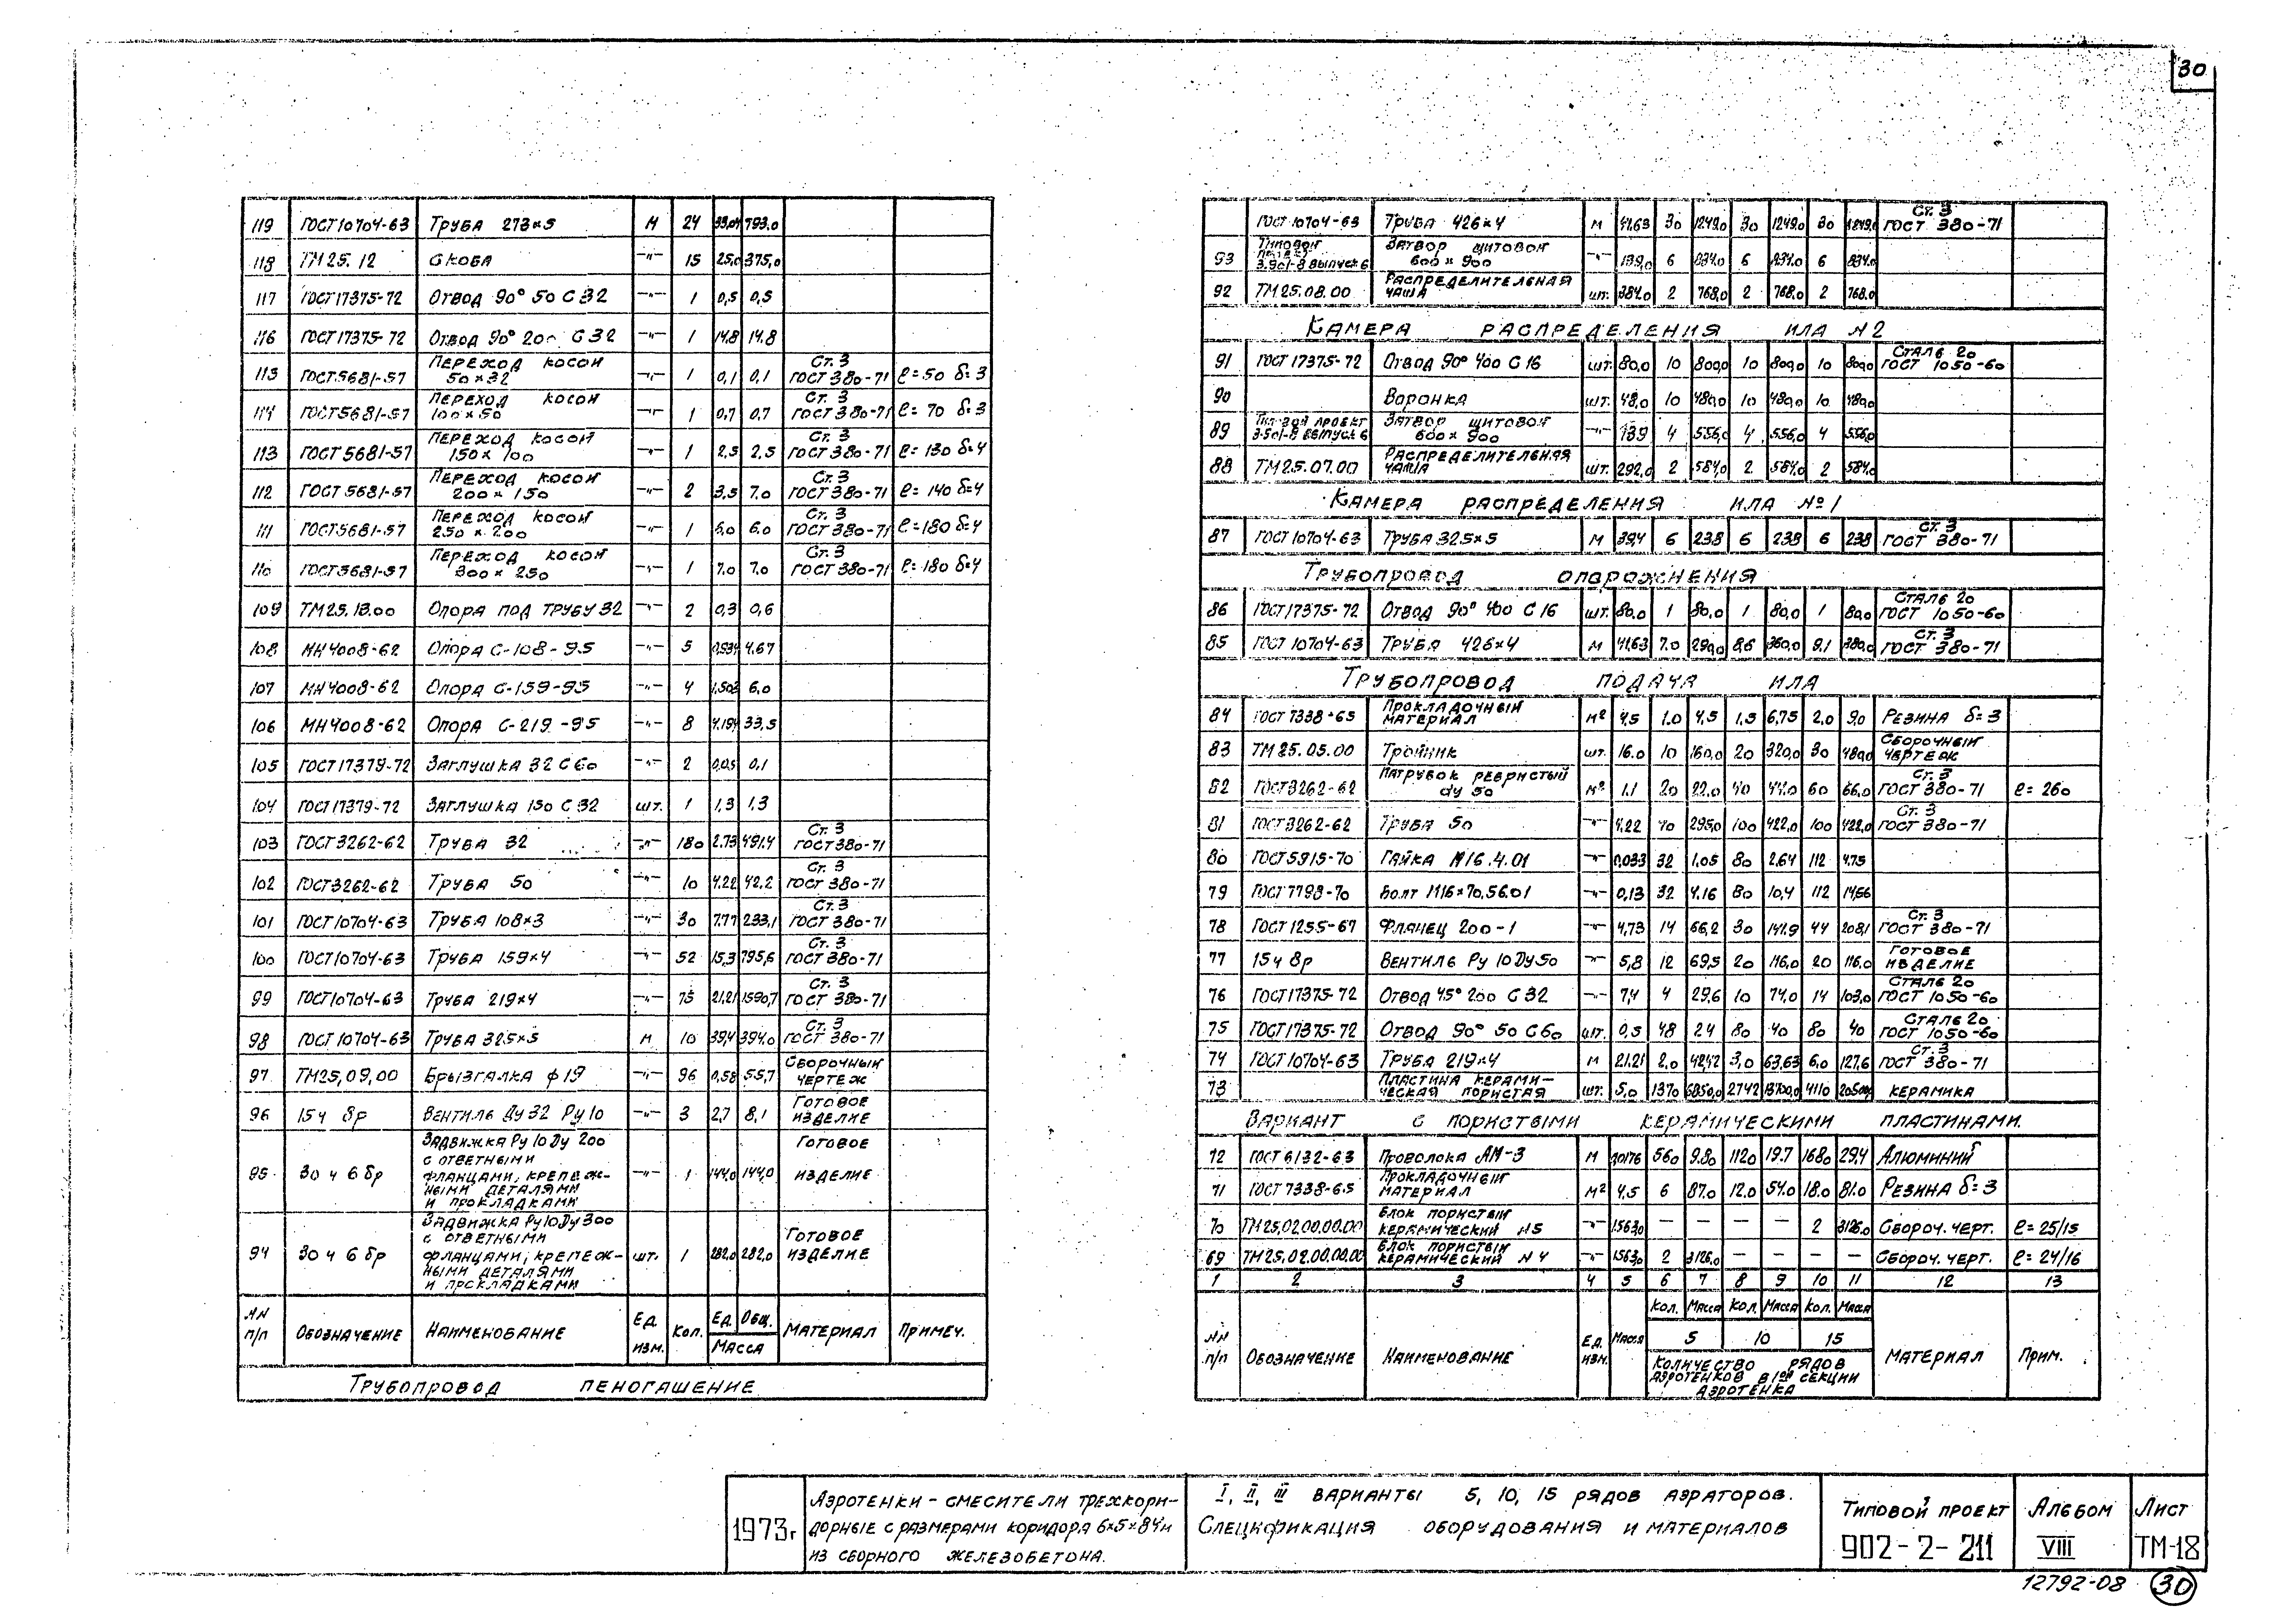 30
119 ГОСТ10704-63 Труба 273×5 м 24 33,04 793,0
118 ТМ25.12 Скоба —"— 15 25,0 375,0
117 ГОСТ17375-72 Отвод 90° 50 С32 —"— 1 0,5 0,5
116 ГОСТ17375-72 Отвод 90° 200 С32 —"— 1 14.8 14.8
115 ГОСТ5681-57 Переход косой 50×32 —"— 1 0,1 0,1 Ст. 3 ГОСТ 380-71 ℓ=50 δ=3
114 ГОСТ5681-57 Переход косой 100×50 —"— 1 0,7 0,7 Ст. 3 ГОСТ 380-71 ℓ=70 δ=3
113 ГОСТ5681-57 Переход косой 150×100 —"— 1 2,5 2,5 Ст. 3 ГОСТ 380-71 ℓ=130 δ=4
112 ГОСТ5681-57 Переход косой 200×150 —"— 2 3,5 7.0 Ст. 3 ГОСТ 380-71 ℓ=140 δ=4
111 ГОСТ5681-57 Переход косой 250×200 —"— 1 6.0 6.0 Ст. 3 ГОСТ 380-71 ℓ=180 δ=4
110 ГОСТ5681-57 Переход косой 300×250 —"— 1 7.0 7.0 Ст. 3 ГОСТ 380-71 ℓ=180 δ=4
109 ТМ25.13.00 Опора под трубу 32 —"— 2 0,3 0,6
108 МН4008-62 Опора С-108-95 —"— 5 0,934 4.67
107 МН4008-62 Опора С-159-95 —"— 4 1,502 6,0
106 МН4008-62 Опора С-219-95 —"— 8 4.194 33,5
105 ГОСТ17379-72 Заглушка 32 С60 —"— 2 0,05 0,1
104 ГОСТ17379-72 Заглушка 150 С32 шт. 1 1,3 1,3
103 ГОСТ3262-62 Труба 32 —"— 180 2.73 491.4 Ст. 3 ГОСТ380-71
102 ГОСТ3262-62 Труба 50 —"— 10 4.22 42,2 Ст. 3 ГОСТ 380-71
101 ГОСТ10704-63 Труба 108×3 —"— 30 7.77 233,1 Ст. 3 ГОСТ 380-71
100 ГОСТ10704-63 Труба 159×4 —"— 52 15,3 795,6 Ст. 3 ГОСТ 380-71
99 ГОСТ10704-63 Труба 219×4 —"— 75 21,21 1590,7 Ст. 3 ГОСТ 380-71
98 ГОСТ10704-63 Труба 325×5 м 10 39,4 394.0 Ст. 3 ГОСТ 380-71
97 ТМ25,09,00 Брызгалка ф19 —"— 96 0,58 55,7 Сборочный чертеж
96 15ч 8р Вентиль Ду32 Ру10 —"— 3 2,7 8,1 Готовое изделие
95 30ч6бр Задвижка Ру10Ду 200
с ответными
фланцами, крепеж-
ными деталями
и прокладками —"— 1 144.0 144,0 Готовое изделие
94 30ч6бр Задвижка Ру10Ду300
с ответными
фланцами, крепеж-
ными деталями
и прокладками шт. 1 282,0 282,0 Готовое изделие
NN п/п Обозначение Наименование Ед. изм. Кол. Ед. Общ. Масса Материал Примеч.
Трубопровод пеногашение
ГОСТ10704-63 Труба 426×4 м 41,63 30 1249,0 30 1249,0 30 1249,0 Ст. 3 ГОСТ 380-71
93 Типовой проект 3.901-8 выпуск 6 Затвор щитовой 600×900 —"— 139,0 6 834.0 6 834.0 6 834.0
92 ТМ25.08.00 Распределительная чаша шт. 384.0 2 768,0 2 768,0 2 768.0
Камера распределения ила N2
91 ГОСТ17375-72 Отвод 90° 400 С16 шт. 80,0 10 800,0 10 800,0 10 800,0 Сталь 20 ГОСТ 1050-60
90 Воронка шт. 48,0 10 480,0 10 480,0 10 480,0
89 Типовой проект 3.901-8 выпуск 6 Затвор щитовой 600×900 —"— 139 4 556,0 4 556,0 4 556,0
88 ТМ25.07.00 Распределительная чаша шт. 292,0 2 584,0 2 584,0 2 584,0
Камера распределения ила №1
87 ГОСТ10704-63 Труба 325×5 м 39,4 6 238 6 238 6 238 Ст. 3 ГОСТ 380-71
Трубопровод опорожнения
86 ГОСТ17375-72 Отвод 90° 400 С16 шт. 80,0 1 80,0 1 80,0 1 80,0 Сталь 20 ГОСТ 1050-60
85 ГОСТ10704-63 Труба 426×4 м 41,63 7.0 290,0 8,6 360,0 9,1 380,0 Ст. 3 ГОСТ 380-71
Трубопровод подача ила
84 ГОСТ7338-65 Прокладочный материал м² 4,5 1.0 4,5 1,5 6,75 2,0 9,0 Резина δ=3
83 ТМ25.05.00 Тройник шт. 16.0 10 160,0 20 320,0 30 480,0 Сборочный чертеж
82 ГОСТ3262-62 Патрубок ребристый dу 50 м² 1.1 20 22,0 40 44.0 60 66,0 Ст. 3 ГОСТ 380-71 ℓ=260
81 ГОСТ3262-62 Труба 50 —"— 4,22 70 295,0 100 422,0 100 422,0 Ст. 3 ГОСТ 380-71
80 ГОСТ5915-70 Гайка М16.4.01 —"— 0,033 32 1.05 80 2,64 112 4.75
79 ГОСТ7798-70 Болт М16×70,56.01 —"— 0,13 32 4.16 80 10,4 112 14,56
78 ГОСТ1255-67 Фланец 200-1 —"— 4,73 14 66,2 30 141,9 44 208,1 Ст. 3 ГОСТ 380-71
77 15ч8р Вентиль Ру10Ду50 —"— 5,8 12 69,5 20 116.0 20 116.0 Готовое изделие
76 ГОСТ17375-72 Отвод 45° 200 С32 —"— 7,4 4 29,6 10 74,0 14 103,0 Сталь 20 ГОСТ 1050-60
75 ГОСТ17375-72 Отвод 90° 50 С60 шт. 0,5 48 24 80 40 80 40 Сталь 20 ГОСТ 1050-60
74 ГОСТ10704-63 Труба 219×4 м 21.21 2.0 42,42 3,0 63,63 6.0 127,6 Ст. 3 ГОСТ 380-71
73 Пластина керами-
ческая пористая шт. 5,0 1370 6850,0 2742 13700,0 4110 20500,0 Керамика
Вариант с пористыми керамическими пластинами.
72 ГОСТ6132-63 Проволока АМ-3 м 560 9.80 1120 19.7 1680 29,4 Алюминий
71 ГОСТ7338-65 Прокладочный материал м² 4,5 6 87.0 12.0 54.0 18.0 81.0 Резина δ=3
70 ТМ25,02.00.00.00 Блок пористый керамический N5 —"— 1563,0 — — — — 2 3126,0 Сбороч. черт. ℓ=25/15
69 ТМ25,02.00.00.00 Блок пористый керамический N4 —"— 1563,0 2 3126,0 — — — — Сбороч. черт. ℓ=24/16
1 2 3 4 5 6 7 8 9 10 11 12 13
Кол. Масса Кол. Масса Кол. Масса
5 10 15
NN п/п Обозначение Наименование Ед. изм. Масса Количество рядов
аэротенков в 1ой секции
аэротенка Материал Прим.
1973г
Аэротенки-смесители трехкори-
дорные с размерами коридора 6×5×84м
из сборного железобетона.
I, II, III варианты 5, 10, 15 рядов аэраторов.
Спецификация оборудования и материалов
Типовой проект
902-2-211
Альбом
VIII
Лист
ТМ-18
12792-08 30